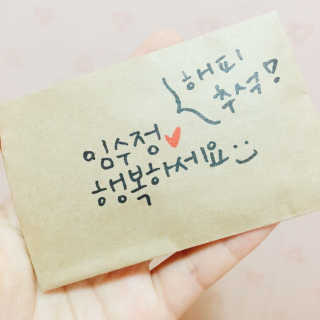 해피
추석!
임수정♥
행복하세요:)